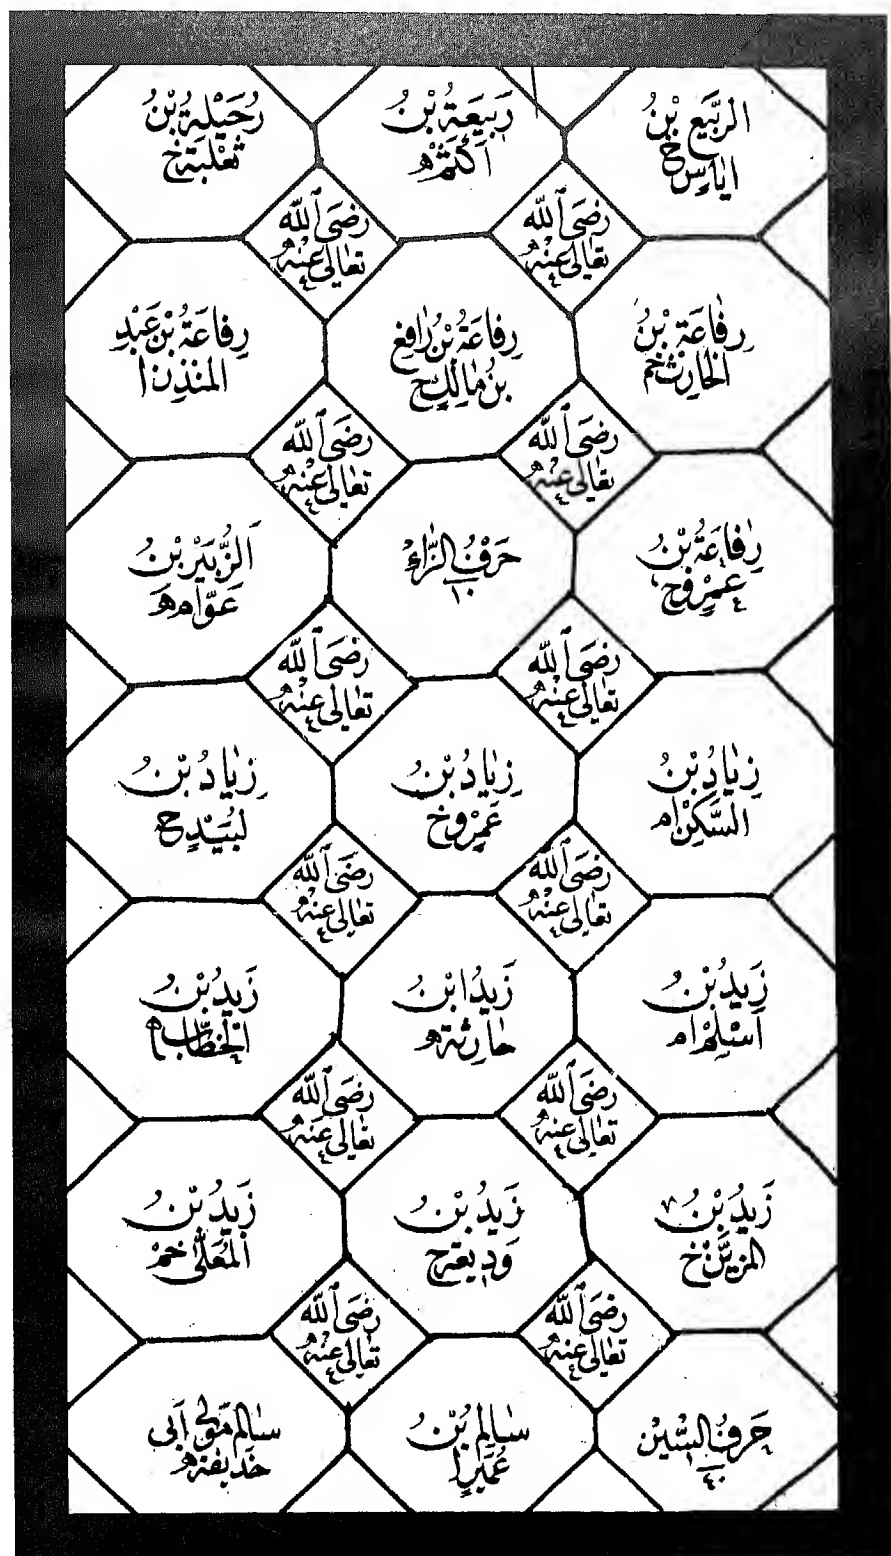 الرَّبِيع بْنُ
اِيَاسٍ خ
رَبِيعَةُ بْنُ
اَكْثَمْ ه
رُحَيْلَةُ بْنُ
ثَعْلَبَةَ خ
رَضِىَ ٱللّٰه
تَعَالٰى عَنْهُ
رَضِىَ ٱللّٰه
تَعَالٰى عَنْهُ
رِفَاعَةُ بْنُ
الْحَارِثْ خم
رِفَاعَةُ بْنُ رَافِعِ
بْنِ مَالِكٍ خ
رِفَاعَةُ بْنُ عَبْدِ
الْمُنْذِرْ ا
رَضِىَ ٱللّٰه
تَعَالٰى عَنْهُ
رَضِىَ ٱللّٰه
تَعَالٰى عَنْهُ
رِفَاعَةُ بْنُ
عَمْرٍو خ
حَرْفُ الزَّاءِ
١٠
اَلزُّبَيْرُ بْنُ
عَوَّامْ ه
رَضِىَ ٱللّٰه
تَعَالٰى عَنْهُ
رَضِىَ ٱللّٰه
تَعَالٰى عَنْهُ
زِيَادُ بْنُ
السَّكَنْ ام
زِيَادُ بْنُ
عَمْرٍو خ
زِيَادُ بْنُ
لَبِيْدٍ خ
رَضِىَ ٱللّٰه
تَعَالٰى عَنْهُ
رَضِىَ ٱللّٰه
تَعَالٰى عَنْهُ
زَيْدُ بْنُ
اَسْلَمْ ام
زَيْدُ ابْنُ
حَارِثَةَ ه
زَيْدُ بْنُ
الْخَطَّابْ ه
رَضِىَ ٱللّٰه
تَعَالٰى عَنْهُ
رَضِىَ ٱللّٰه
تَعَالٰى عَنْهُ
زَيْدُ بْنُ
الْمُزَيَّنْ خ
زَيْدُ بْنُ
وَدِيعَةَ خ
زَيْدُ بْنُ
الْمُعَلّٰى خم
رَضِىَ ٱللّٰه
تَعَالٰى عَنْهُ
رَضِىَ ٱللّٰه
تَعَالٰى عَنْهُ
حَرْفُ السِّيْنِ
٤٠
سَالِمُ بْنُ
عُمَيْرٍ ا
سَالِمْ مَوْلٰى اَبِى
حُذَيْفَةَ ه